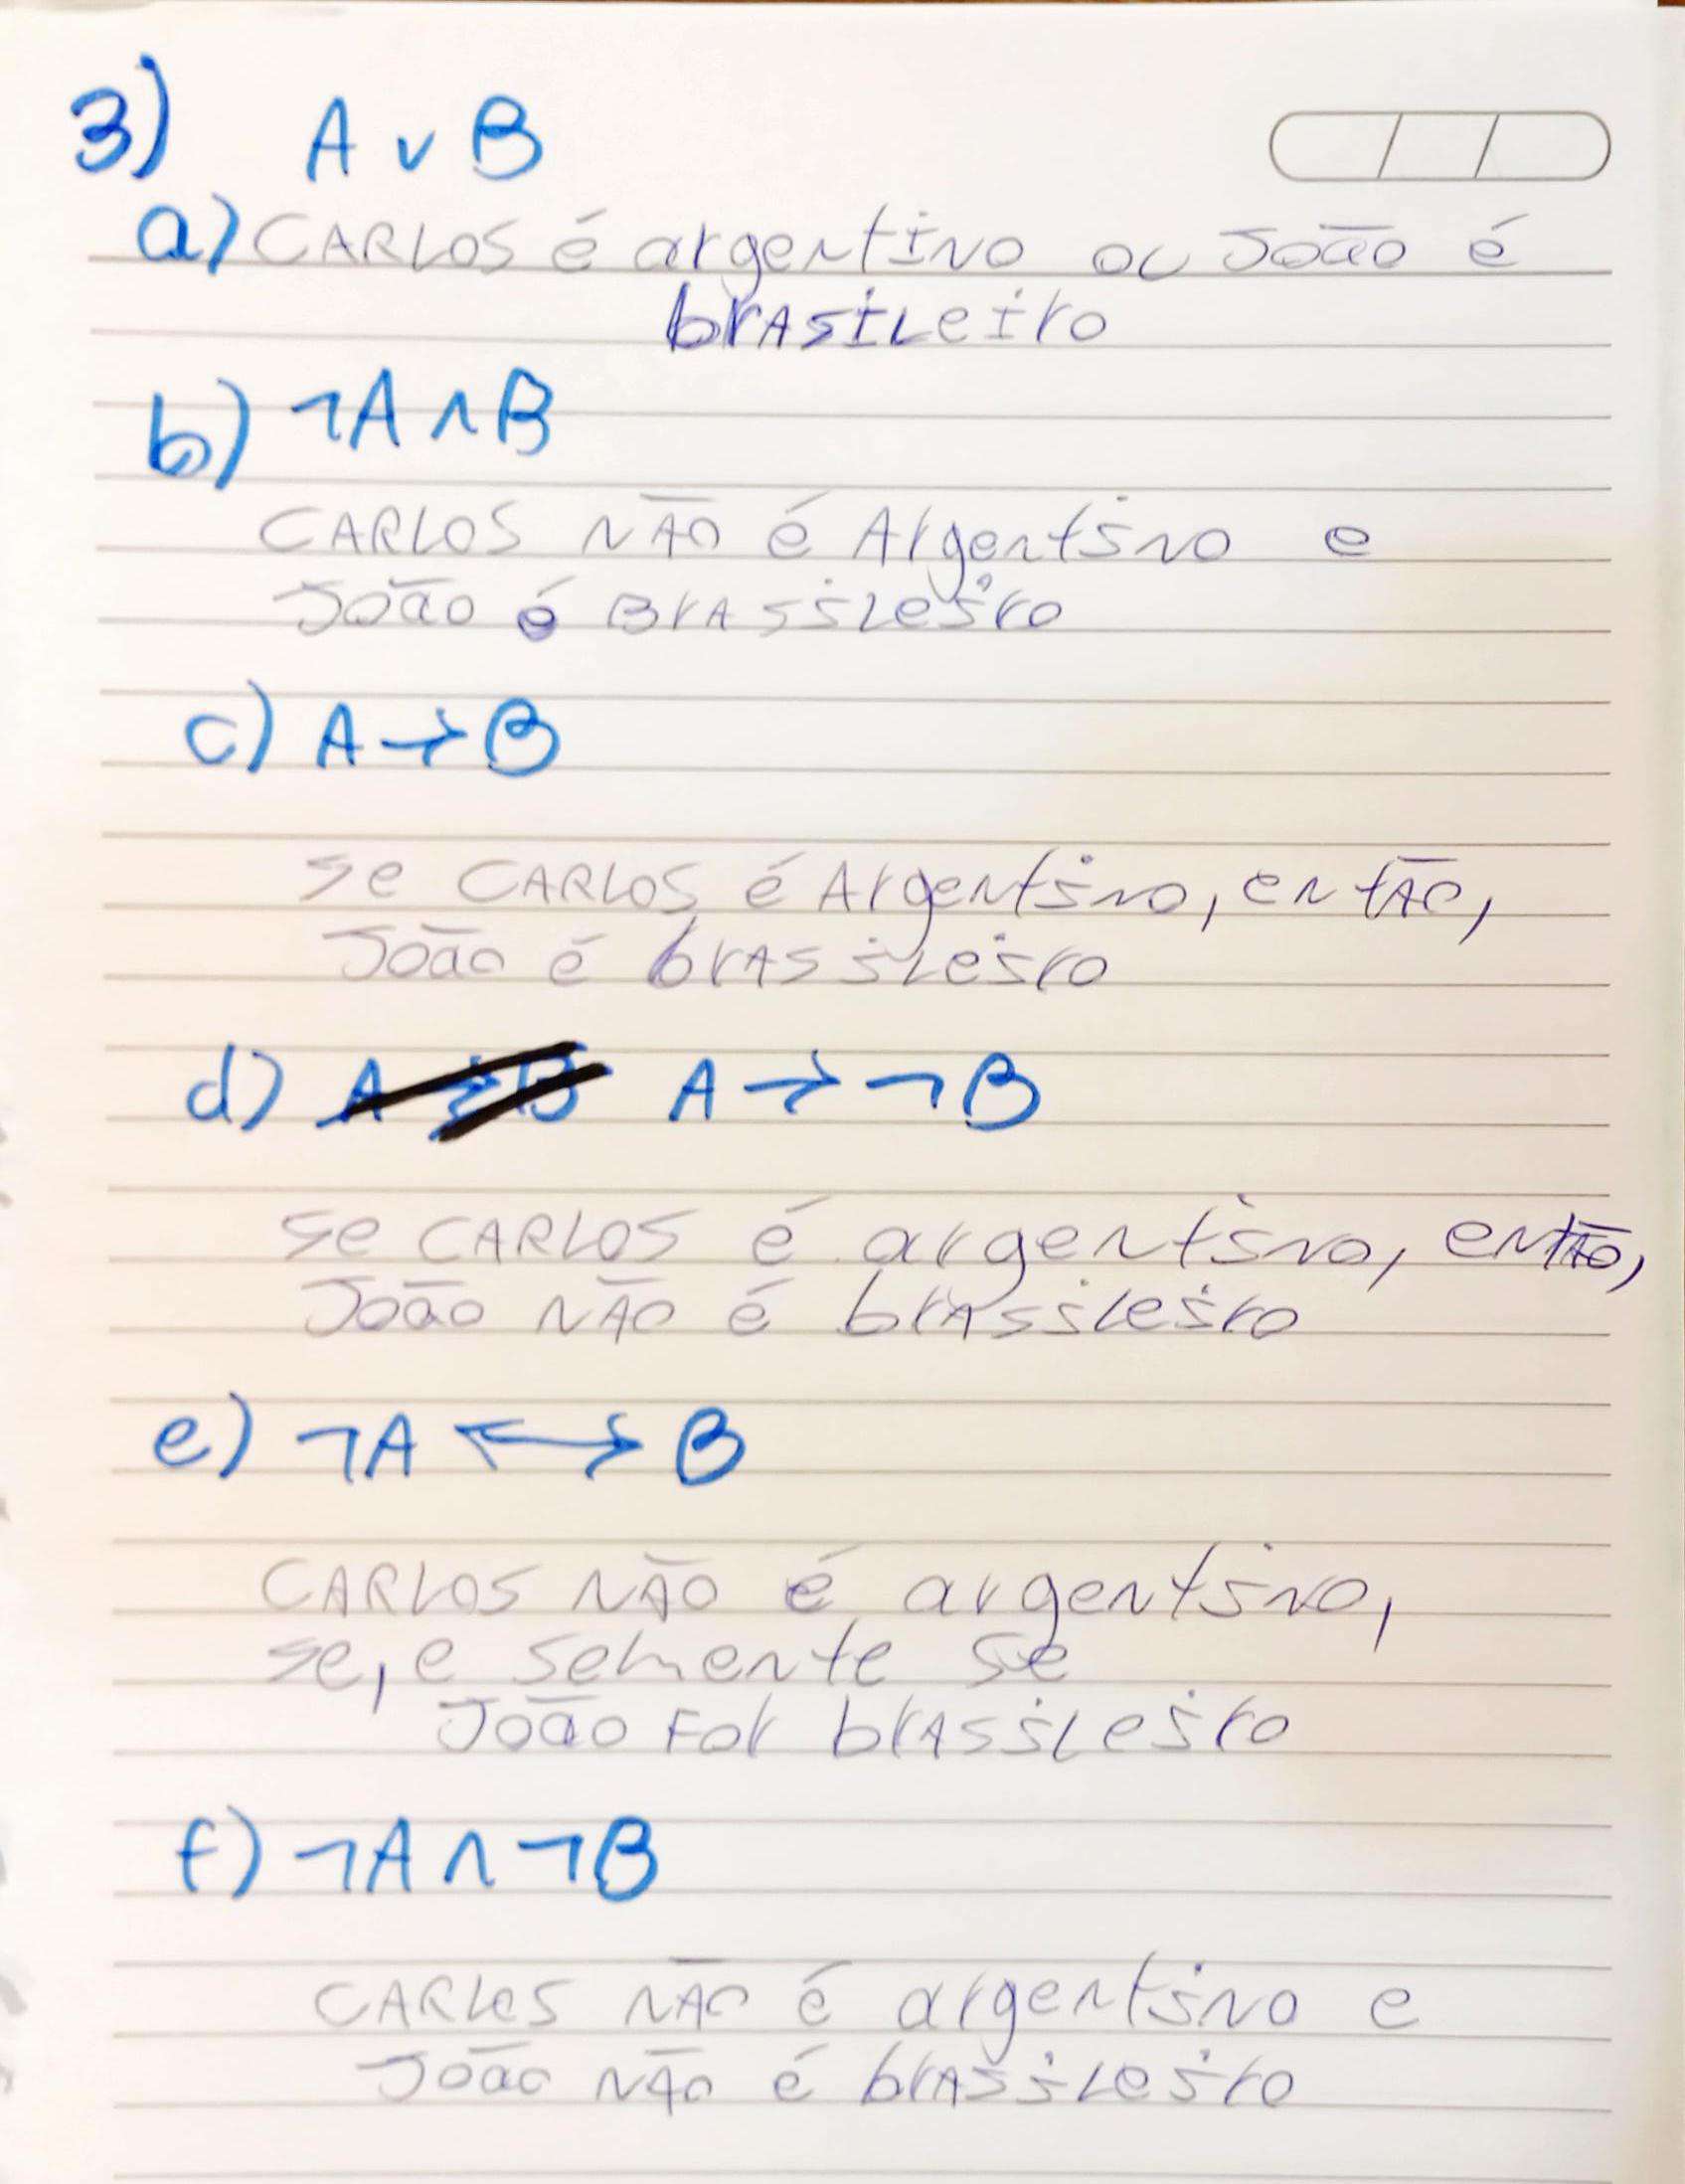 3) A ∨ B
a) CARLOS é argentino ou João é
brasileiro
b) ¬A ∧ B
CARLOS NÃO é Argentino e
João é Brasileiro
c) A → B
se CARLOS é Argentino, entÃo,
João é brasileiro
d) A → B A → ¬B
se CARLOS é argentino, entÃo,
João NÃO é brasileiro
e) ¬A ↔ B
CARLOS NÃO é argentino,
se, e somente se
João For brasileiro
f) ¬A ∧ ¬B
CARLos NÃO é argentino e
João NÃO é brasileiro